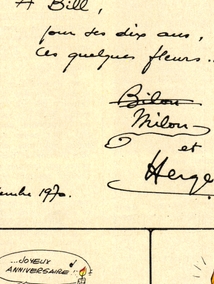 A Bill,
pour ses dix ans,
ces quelques fleurs..
Bilou
Milou
et
Hergé
embre 1970.
...JOYEUX
ANNIVERSAIRE